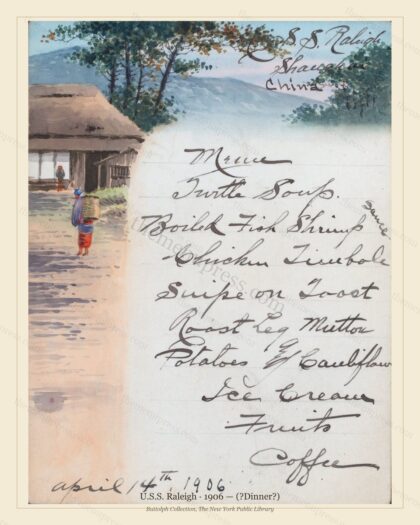 U.S.S. Raleigh
Shanghai
China
Menu
Turtle Soup.
Boiled Fish Shrimp Sauce
Chicken Timbale
Snipe on Toast
Roast Leg of Mutton
Potatoes Cauliflower
Ice Cream
Fruits
Coffee
April 14th 1906
U.S.S. Raleigh - 1906 — (?Dinner?)
Buttolph Collection, The New York Public Library
themenupress.com